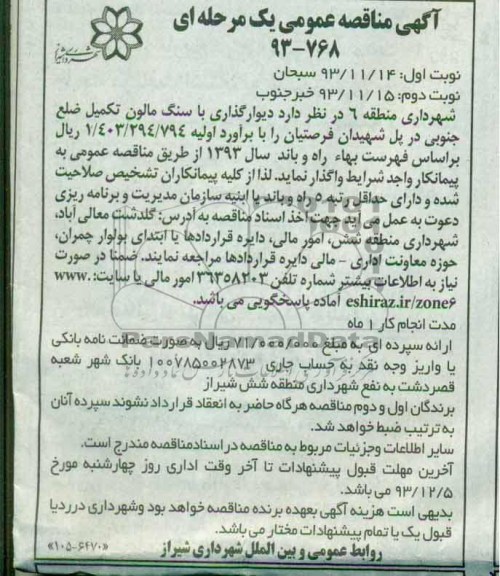 آگهی مناقصه عمومی یک مرحله ای
۹۳-۷۶۸
شهرداری شیراز
نوبت اول: ۹۳/۱۱/۱۴ سبحان
نوبت دوم: ۹۳/۱۱/۱۵ خبرجنوب
شهرداری منطقه ۶ در نظر دارد دیوارگذاری با سنگ مالون تکمیل ضلع
جنوبی در پل شهیدان فرصتیان را با برآورد اولیه ۱/۴۰۳/۲۹۴/۷۹۴ ریال
براساس فهرست بهاء راه و باند سال ۱۳۹۳ از طریق مناقصه عمومی به
پیمانکار واجد شرایط واگذار نماید. لذا از کلیه پیمانکاران تشخیص صلاحیت
شده و دارای حداقل رتبه ۵ راه و باند یا ابنیه سازمان مدیریت و برنامه ریزی
دعوت به عمل می آید جهت اخذ اسناد مناقصه به آدرس: گلدشت معالی آباد،
شهرداری منطقه شش، امور مالی، دایره قراردادها یا ابتدای بولوار چمران،
حوزه معاونت اداری - مالی دایره قراردادها مراجعه نمایند. ضمناً در صورت
نیاز به اطلاعات بیشتر شماره تلفن ۳۶۳۵۸۲۰۳ امور مالی یا سایت: www.
eshiraz.ir/zone۶ آماده پاسخگویی می باشد.
مدت انجام کار ۱ ماه
ارائه سپرده ای به مبلغ ۷۱/۰۰۰/۰۰۰ ریال به صورت ضمانت نامه بانکی
یا واریز وجه نقد به حساب جاری ۱۰۰۷۸۵۰۰۲۸۷۳ بانک شهر شعبه
قصردشت به نفع شهرداری منطقه شش شیراز
برندگان اول و دوم مناقصه هرگاه حاضر به انعقاد قرارداد نشوند سپرده آنان
به ترتیب ضبط خواهد شد.
سایر اطلاعات وجزئیات مربوط به مناقصه در اسنادمناقصه مندرج است.
آخرین مهلت قبول پیشنهادات تا آخر وقت اداری روز چهارشنبه مورخ
۹۳/۱۲/۵ می باشد.
بدیهی است هزینه آگهی بعهده برنده مناقصه خواهد بود وشهرداری درردیا
قبول یک یا تمام پیشنهادات مختار می باشد.
روابط عمومی و بین الملل شهرداری شیراز
«۱۰۵-۶۴۷۰»
ParsNamadData